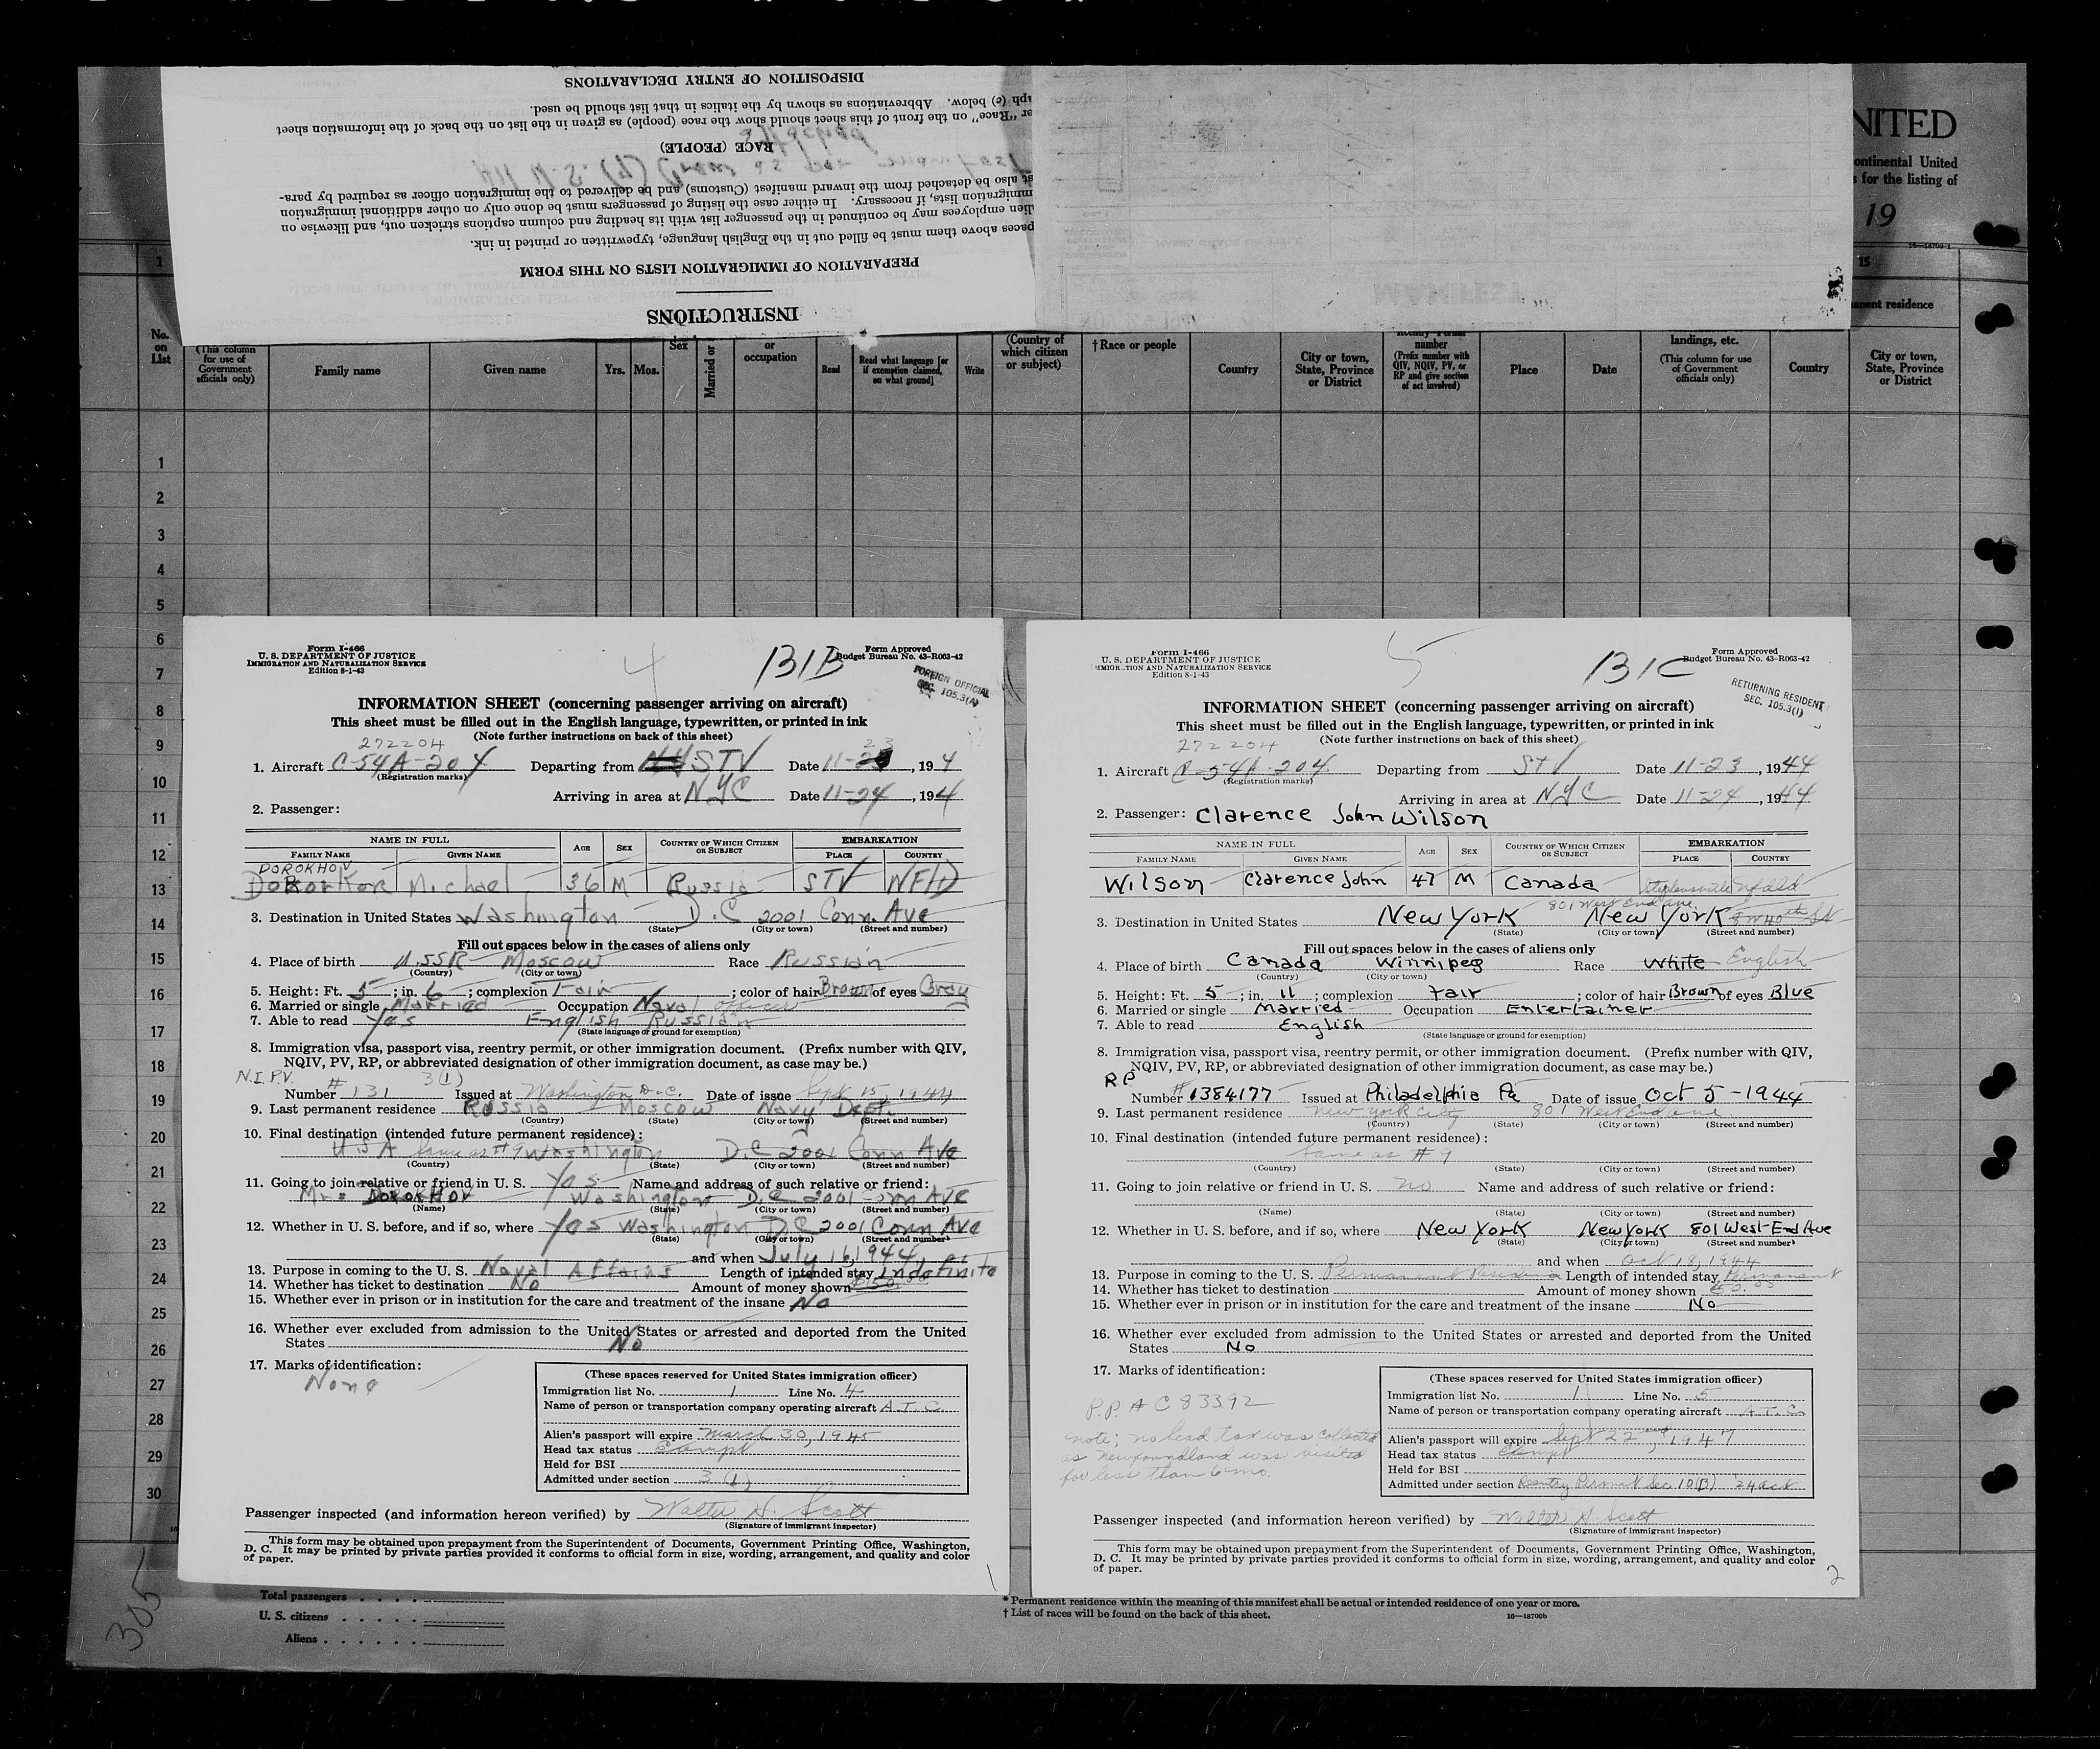 INSTRUCTIONS
PREPARATION OF IMMIGRATION LISTS ON THIS FORM
paces above them must be filled out in the English language, typewritten or printed in ink.
lien employees may be continued in the passenger list with its heading and column captions stricken out, and likewise on
mmigration lists, if necessary. In either case the listing of passengers must be done only on other additional immigration
st also be detached from the inward manifest (Customs) and be delivered to the immigration officer as required by para-
RACE (PEOPLE)
er "Race" on the front of this sheet should show the race (people) as given in the list on the back of the information sheet
aph (c) below. Abbreviations as shown by the italics in that list should be used.
DISPOSITION OF ENTRY DECLARATIONS
MANIFEST
NITED
ontinental United
s for the listing of
19
16—18709-1
1
15
anent residence
No. on List
(This column for use of Government officials only)
Family name
Given name
Yrs.
Mos.
Sex
Married or s
or occupation
Read
Read what language [or if exemption claimed, on what ground]
Write
(Country of which citizen or subject)
†Race or people
Country
City or town, State, Province or District
number (Prefix number with QIV, NQIV, PV, or RP and give section of act involved)
Place
Date
landings, etc. (This column for use of Government officials only)
Country
City or town, State, Province or District
1
2
3
4
5
6
7
8
9
10
11
12
13
14
15
16
17
18
19
20
21
22
23
24
25
26
27
28
29
30
Form I-466
U. S. DEPARTMENT OF JUSTICE
IMMIGRATION AND NATURALIZATION SERVICE
Edition 8-1-43
4
131B
Form Approved
Budget Bureau No. 43-R063-42
FOREIGN OFFICIAL
SEC. 105.3(A)
INFORMATION SHEET (concerning passenger arriving on aircraft)
This sheet must be filled out in the English language, typewritten, or printed in ink
(Note further instructions on back of this sheet)
272204
23
1. Aircraft C-54A-204 Departing from STV Date 11-, 194
(Registration marks)
Arriving in area at NYC Date 11-24, 194
2. Passenger:
NAME IN FULL AGE SEX COUNTRY OF WHICH CITIZEN OR SUBJECT EMBARKATION
FAMILY NAME GIVEN NAME PLACE COUNTRY
DOROKHOV
Michael 36 M Russia STV NFLD
3. Destination in United States Washington D.C 2001 Conn. Ave
(State) (City or town) (Street and number)
Fill out spaces below in the cases of aliens only
4. Place of birth U.SSR Moscow Race Russian
(Country) (City or town)
5. Height: Ft. 5; in. 6; complexion Fair; color of hair Brown of eyes Gray
6. Married or single Married Occupation Naval officer
7. Able to read Yes English Russian
(State language or ground for exemption)
8. Immigration visa, passport visa, reentry permit, or other immigration document. (Prefix number with QIV,
NQIV, PV, RP, or abbreviated designation of other immigration document, as case may be.)
N.I.P.V. 3(1)
Number # 131 Issued at Washington D.C. Date of issue Sept 15, 1944
9. Last permanent residence Russia Moscow Navy Dept.
(Country) (State) (City or town) (Street and number)
10. Final destination (intended future permanent residence):
USA Same as #9 Washington D.C 2001 Conn Ave
(Country) (State) (City or town) (Street and number)
11. Going to join relative or friend in U. S. Yes Name and address of such relative or friend:
Mrs DOROKHOV Washington D.C 2001 Conn AVE
(Name) (State) (City or town) (Street and number)
12. Whether in U. S. before, and if so, where Yes Washington DC 2001 Conn Ave
(State) (City or town) (Street and number)
and when July 16, 1944
13. Purpose in coming to the U. S. Naval Affairs Length of intended stay indefinite
14. Whether has ticket to destination No Amount of money shown $150.00
15. Whether ever in prison or in institution for the care and treatment of the insane No
16. Whether ever excluded from admission to the United States or arrested and deported from the United
States No
17. Marks of identification:
None
(These spaces reserved for United States immigration officer)
Immigration list No. 1 Line No. 4
Name of person or transportation company operating aircraft A.T.C.
Alien's passport will expire March 30, 1945
Head tax status Exempt
Held for BSI
Admitted under section 3(1)
Passenger inspected (and information hereon verified) by Walter H. Scott
(Signature of immigrant inspector)
This form may be obtained upon prepayment from the Superintendent of Documents, Government Printing Office, Washington,
D. C. It may be printed by private parties provided it conforms to official form in size, wording, arrangement, and quality and color
of paper.
1
Form I-466
U. S. DEPARTMENT OF JUSTICE
IMMIGR TION AND NATURALIZATION SERVICE
Edition 8-1-43
5
131C
Form Approved
Budget Bureau No. 43-R063-42
RETURNING RESIDENT
SEC. 105.3(1)
INFORMATION SHEET (concerning passenger arriving on aircraft)
This sheet must be filled out in the English language, typewritten, or printed in ink
(Note further instructions on back of this sheet)
272204
1. Aircraft C-54A-204 Departing from STV Date 11-23, 1944
(Registration marks)
Arriving in area at NYC Date 11-24, 1944
2. Passenger: Clarence John Wilson
NAME IN FULL AGE SEX COUNTRY OF WHICH CITIZEN OR SUBJECT EMBARKATION
FAMILY NAME GIVEN NAME PLACE COUNTRY
Wilson Clarence John 47 M Canada Stephensville Nfdld
801 West End Ave.
3. Destination in United States New York New York 8 W 40th St
(State) (City or town) (Street and number)
Fill out spaces below in the cases of aliens only
4. Place of birth Canada Winnipeg Race White English
(Country) (City or town)
5. Height: Ft. 5; in. 11; complexion Fair; color of hair Brown of eyes Blue
6. Married or single Married Occupation Entertainer
7. Able to read English
(State language or ground for exemption)
8. Immigration visa, passport visa, reentry permit, or other immigration document. (Prefix number with QIV,
NQIV, PV, RP, or abbreviated designation of other immigration document, as case may be.)
RP
Number #1384177 Issued at Philadelphia Pa Date of issue Oct 5-1944
9. Last permanent residence New York City 801 West End Ave
(Country) (State) (City or town) (Street and number)
10. Final destination (intended future permanent residence):
Same as #9
(Country) (State) (City or town) (Street and number)
11. Going to join relative or friend in U. S. No Name and address of such relative or friend:
(Name) (State) (City or town) (Street and number)
12. Whether in U. S. before, and if so, where New York New York 801 West-End Ave
(State) (City or town) (Street and number)
and when Oct 18, 1944
13. Purpose in coming to the U. S. Permanent Length of intended stay Permanent
14. Whether has ticket to destination Amount of money shown
15. Whether ever in prison or in institution for the care and treatment of the insane No
16. Whether ever excluded from admission to the United States or arrested and deported from the United
States No
17. Marks of identification:
P.P. # C 83392
note; no head tax was collected
as Newfoundland was visited
for less than 6 mo.
(These spaces reserved for United States immigration officer)
Immigration list No. 1 Line No. 5
Name of person or transportation company operating aircraft A.T.C.
Alien's passport will expire Sept 22nd, 1947
Head tax status Exempt
Held for BSI
Admitted under section Reentry Permit Sec 10(B) 24 act
Passenger inspected (and information hereon verified) by Walter H Scott
(Signature of immigrant inspector)
This form may be obtained upon prepayment from the Superintendent of Documents, Government Printing Office, Washington,
D. C. It may be printed by private parties provided it conforms to official form in size, wording, arrangement, and quality and color
of paper.
2
305
Total passengers
U. S. citizens
Aliens
* Permanent residence within the meaning of this manifest shall be actual or intended residence of one year or more.
† List of races will be found on the back of this sheet.
16—18709b